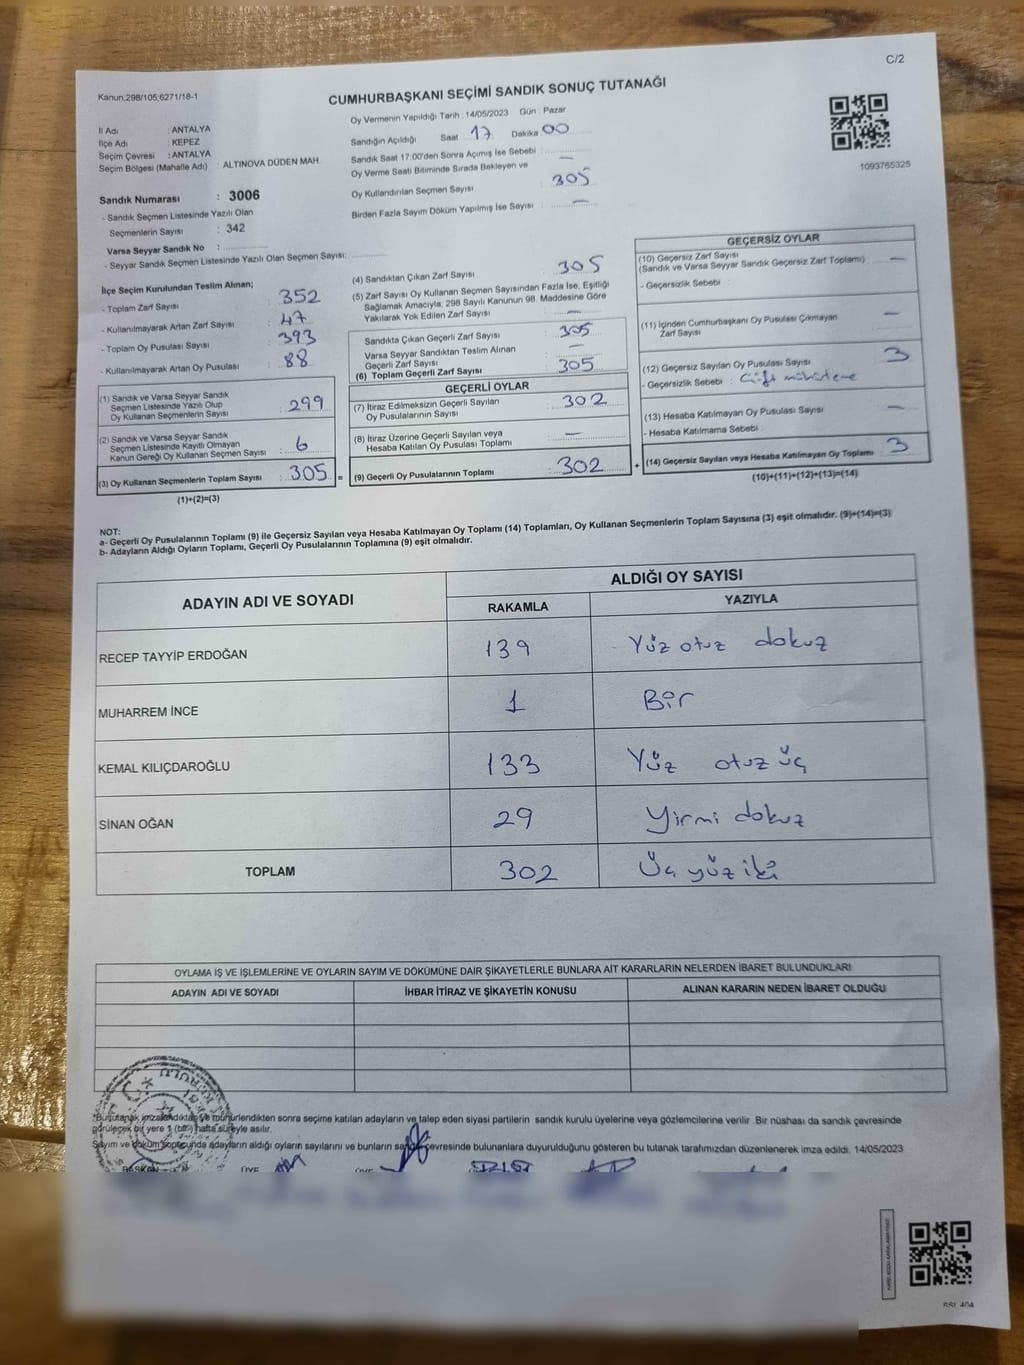 C/2
Kanun:298/105;6271/18-1
CUMHURBAŞKANI SEÇİMİ SANDIK SONUÇ TUTANAĞI
Oy Vermenin Yapıldığı Tarih : 14/05/2023 Gün : Pazar
İl Adı : ANTALYA
İlçe Adı : KEPEZ
Seçim Çevresi : ANTALYA
Seçim Bölgesi (Mahalle Adı) : ALTINOVA DÜDEN MAH.
Sandığın Açıldığı Saat 17 Dakika 00
Sandık Saat 17.00'den Sonra Açımış İse Sebebi : —
Oy Verme Saati Bitiminde Sırada Bekleyen ve
Oy Kullandırılan Seçmen Sayısı : 305
Birden Fazla Sayım Döküm Yapılmış İse Sayısı : —
1093765325
Sandık Numarası : 3006
- Sandık Seçmen Listesinde Yazılı Olan
Seçmenlerin Sayısı : 342
Varsa Seyyar Sandık No :
- Seyyar Sandık Seçmen Listesinde Yazılı Olan Seçmen Sayısı:
İlçe Seçim Kurulundan Teslim Alınan;
- Toplam Zarf Sayısı : 352
- Kullanılmayarak Artan Zarf Sayısı : 47
- Toplam Oy Pusulası Sayısı : 393
- Kullanılmayarak Artan Oy Pusulası : 88
(1) Sandık ve Varsa Seyyar Sandık
Seçmen Listesinde Yazılı Olup
Oy Kullanan Seçmenlerin Sayısı : 299
(2) Sandık ve Varsa Seyyar Sandık
Seçmen Listesinde Kayıtlı Olmayan
Kanun Gereği Oy Kullanan Seçmen Sayısı : 6
(3) Oy Kullanan Seçmenlerin Toplam Sayısı : 305 =
(1)+(2)=(3)
(4) Sandıktan Çıkan Zarf Sayısı : 305
(5) Zarf Sayısı Oy Kullanan Seçmen Sayısından Fazla İse, Eşitliği
Sağlamak Amacıyla, 298 Sayılı Kanunun 98. Maddesine Göre
Yakılarak Yok Edilen Zarf Sayısı : —
Sandıkta Çıkan Geçerli Zarf Sayısı : 305
Varsa Seyyar Sandıktan Teslim Alınan
Geçerli Zarf Sayısı : —
(6) Toplam Geçerli Zarf Sayısı : 305
GEÇERLİ OYLAR
(7) İtiraz Edilmeksizin Geçerli Sayılan
Oy Pusulalarının Sayısı : 302
(8) İtiraz Üzerine Geçerli Sayılan veya
Hesaba Katılan Oy Pusulası Toplamı : —
(9) Geçerli Oy Pusulalarının Toplamı : 302 +
GEÇERSİZ OYLAR
(10) Geçersiz Zarf Sayısı
(Sandık ve Varsa Seyyar Sandık Geçersiz Zarf Toplamı) : —
- Geçersizlik Sebebi :
(11) İçinden Cumhurbaşkanı Oy Pusulası Çıkmayan
Zarf Sayısı : —
(12) Geçersiz Sayılan Oy Pusulası Sayısı : 3
- Geçersizlik Sebebi : Çift mühürleme
(13) Hesaba Katılmayan Oy Pusulası Sayısı : —
- Hesaba Katılmama Sebebi :
(14) Geçersiz Sayılan veya Hesaba Katılmayan Oy Toplamı : 3
(10)+(11)+(12)+(13)=(14)
NOT:
a- Geçerli Oy Pusulalarının Toplamı (9) ile Geçersiz Sayılan veya Hesaba Katılmayan Oy Toplamı (14) Toplamları, Oy Kullanan Seçmenlerin Toplam Sayısına (3) eşit olmalıdır. (9)+(14)=(3)
b- Adayların Aldığı Oyların Toplamı, Geçerli Oy Pusulalarının Toplamına (9) eşit olmalıdır.
ADAYIN ADI VE SOYADI ALDIĞI OY SAYISI
RAKAMLA YAZIYLA
RECEP TAYYİP ERDOĞAN 139 Yüz otuz dokuz
MUHARREM İNCE 1 Bir
KEMAL KILIÇDAROĞLU 133 Yüz otuz üç
SİNAN OĞAN 29 Yirmi dokuz
TOPLAM 302 Üç yüz iki
OYLAMA İŞ VE İŞLEMLERİNE VE OYLARIN SAYIM VE DÖKÜMÜNE DAİR ŞİKAYETLERLE BUNLARA AİT KARARLARIN NELERDEN İBARET BULUNDUKLARI
ADAYIN ADI VE SOYADI İHBAR İTİRAZ VE ŞİKAYETİN KONUSU ALINAN KARARIN NEDEN İBARET OLDUĞU
*Bu tutanak imzalandıktan ve mühürlendikten sonra seçime katılan adayların ve talep eden siyasi partilerin sandık kurulu üyelerine veya gözlemcilerine verilir. Bir nüshası da sandık çevresinde
görülecek bir yere 1 (bir) hafta süreyle asılır.
Sayım ve döküm sonucunda adayların aldığı oyların sayılarını ve bunların sandık çevresinde bulunanlara duyurulduğunu gösteren bu tutanak tarafımızdan düzenlenerek imza edildi. 14/05/2023
BAŞKAN ÜYE ÜYE